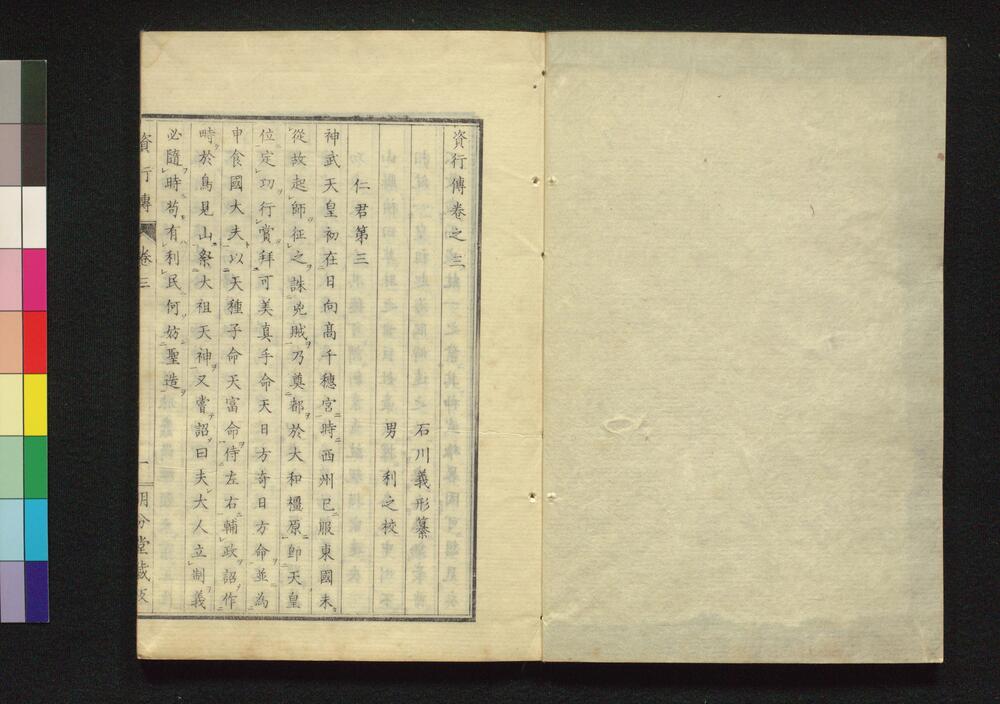 資行傳卷之三
石川義形纂
男 利之校
仁君第三
神武天皇初在日向高千穗宮時西州已服東國未
從故起師征之誅兇賊乃奠都於大和橿原即天皇
位定功行賞拜可美真手命天日方奇日方命並為
申食國大夫以天種子命天富命侍左右輔政詔作
時於鳥見山祭大祖天神又嘗詔曰夫大人立制義
必隨時苟有利民何妨聖造
資行傳 卷三 一 明分堂藏板